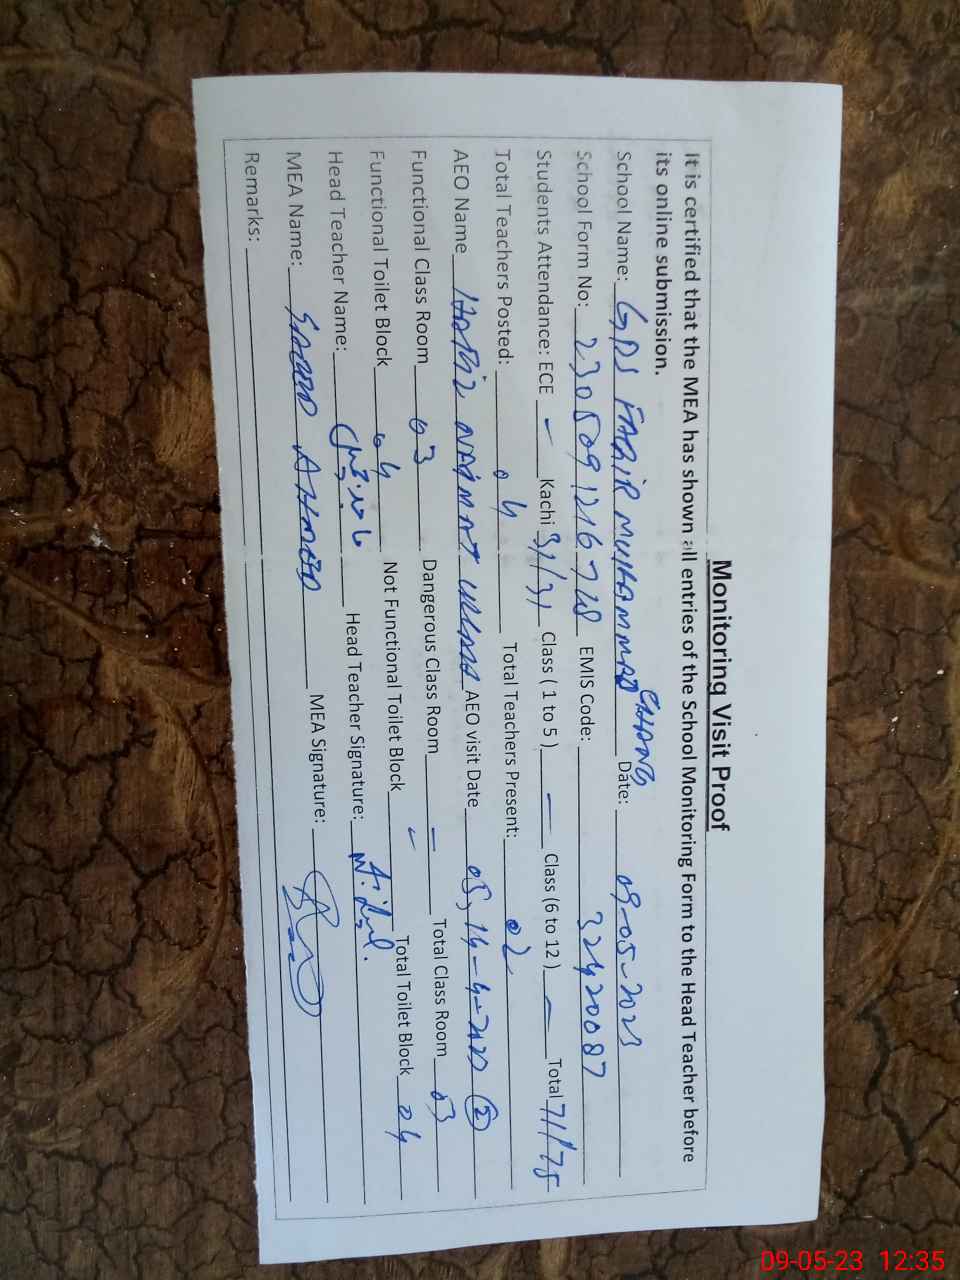 Monitoring Visit Proof
It is certified that the MEA has shown all entries of the School Monitoring Form to the Head Teacher before
its online submission.
School Name: GPS FAQIR MUHAMMAD CHANG Date: 09-05-2023
School Form No: EMIS Code: 32420087
Students Attendance: ECE - Kachi 31/31 Class ( 1 to 5 ) - Class (6 to 12 ) - Total 71/75
Total Teachers Posted: 04 Total Teachers Present: 02
AEO Name AEO visit Date
Functional Class Room 03 Dangerous Class Room - Total Class Room 03
Functional Toilet Block 04 Not Functional Toilet Block - Total Toilet Block 04
Head Teacher Name: Head Teacher Signature:
MEA Name: SAEED AHMED MEA Signature:
Remarks:
09-05-23 12:35